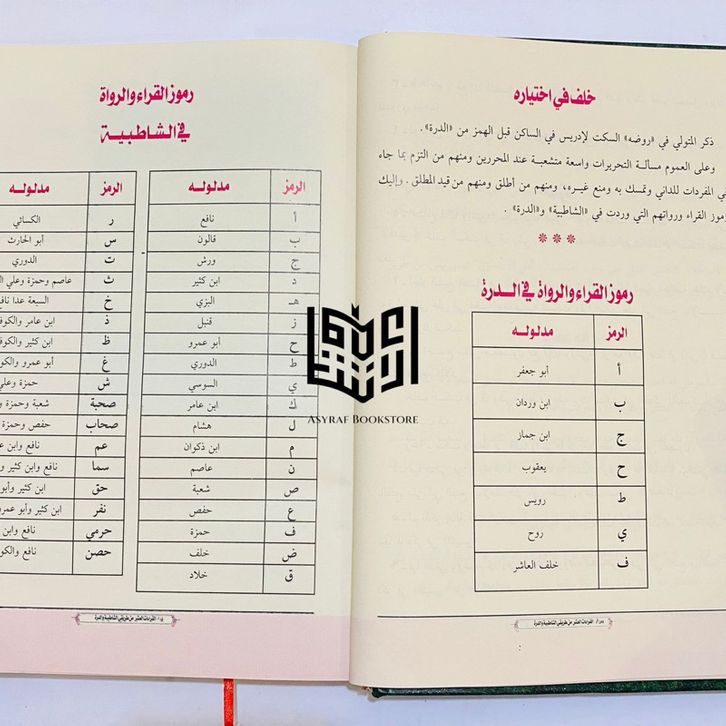 خلف في اختياره
ذكر المتولي في «روضه» السكت لإدريس في الساكن قبل الهمز من «الدرة».
وعلى العموم مسألة التحريرات واسعة متشعبة عند المحررين ومنهم من التزم بما جاء
في المفردات للداني وتمسك به ومنع غيره، ومنهم من أطلق ومنهم من قيد المطلق. وإليك
رموز القراء ورواتهم التي وردت في «الشاطبية» و«الدرة».
***
رموز القراء والرواة في الدرة
الرمز مدلوله
أ أبو جعفر
ب ابن وردان
ج ابن جماز
ح يعقوب
ط رويس
ي روح
ف خلف العاشر
القراءات العشر من طريقي الشاطبية والدرة
رموز القراء والرواة
في الشاطبية
الرمز مدلوله
أ نافع
ب قالون
ج ورش
د ابن كثير
هـ البزي
ز قنبل
ح أبو عمرو
ط الدوري
ي السوسي
ك ابن عامر
ل هشام
م ابن ذكوان
ن عاصم
ص شعبة
ع حفص
ف حمزة
ض خلف
ق خلاد
الرمز مدلوله
ر الكسائي
س أبو الحارث
ت الدوري
ث عاصم وحمزة وعلي
خ السبعة عدا نافع
ذ ابن عامر والكوف
ظ ابن كثير والكوف
غ أبو عمرو والكوف
ش حمزة وعلي
صحبة شعبة وحمزة و
صحاب حفص وحمزة و
عم نافع وابن عا
سما نافع وابن كثير و
حق ابن كثير وأبو
نفر ابن كثير وأبو عمرو
حرمي نافع وابن
حصن نافع والكو
القراءات العشر من طريقي الشاطبية والدرة
ASYRAF BOOKSTORE